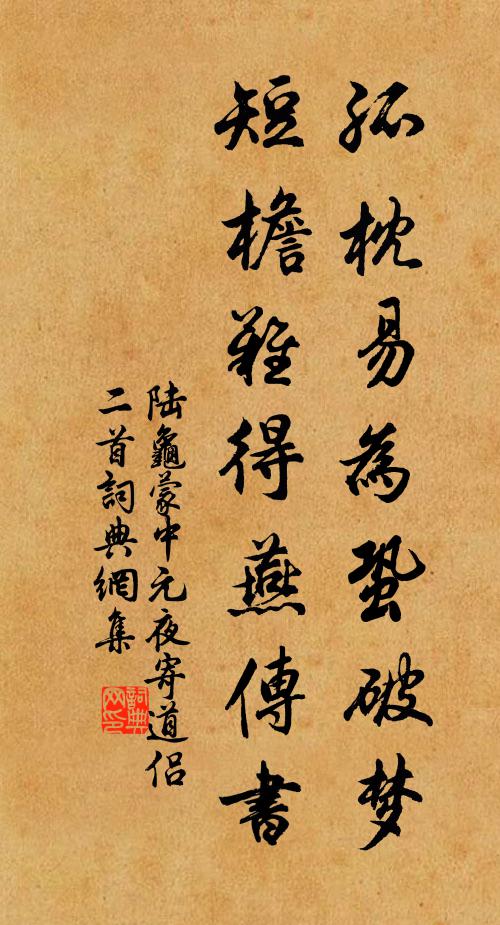 孤枕易為蛩破梦
短檐難得燕傳書
陆龜蒙中元夜寄道侣
二首詞典網集
詞典
网印